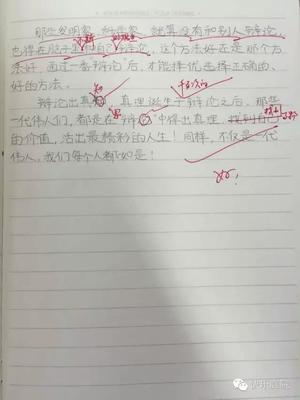 那些发明家、科学家,就算没有和别人辩论,
也得在脑子里和自己辩论,这个方法好还是那个方
法好,通过一番"辩论"后,才能择优选择正确的、
好的方法。
辩论出真知,真理诞生于辩论之后,那些
一代伟人们,都是在"辩论"中得出真理,找到自己
的价值,活出最精彩的人生!同样,不仅是一代
伟人,我们每个人都如是!
好!